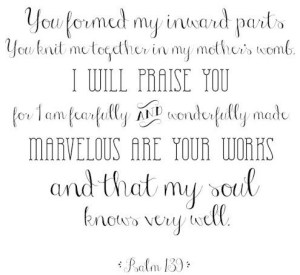 You formed my inward parts
You knit me together in my mother's womb.
I WILL PRAISE YOU
for I am fearfully AND wonderfully made
MARVELOUS ARE YOUR WORKS
and that my soul
knows very well.
Psalm 139